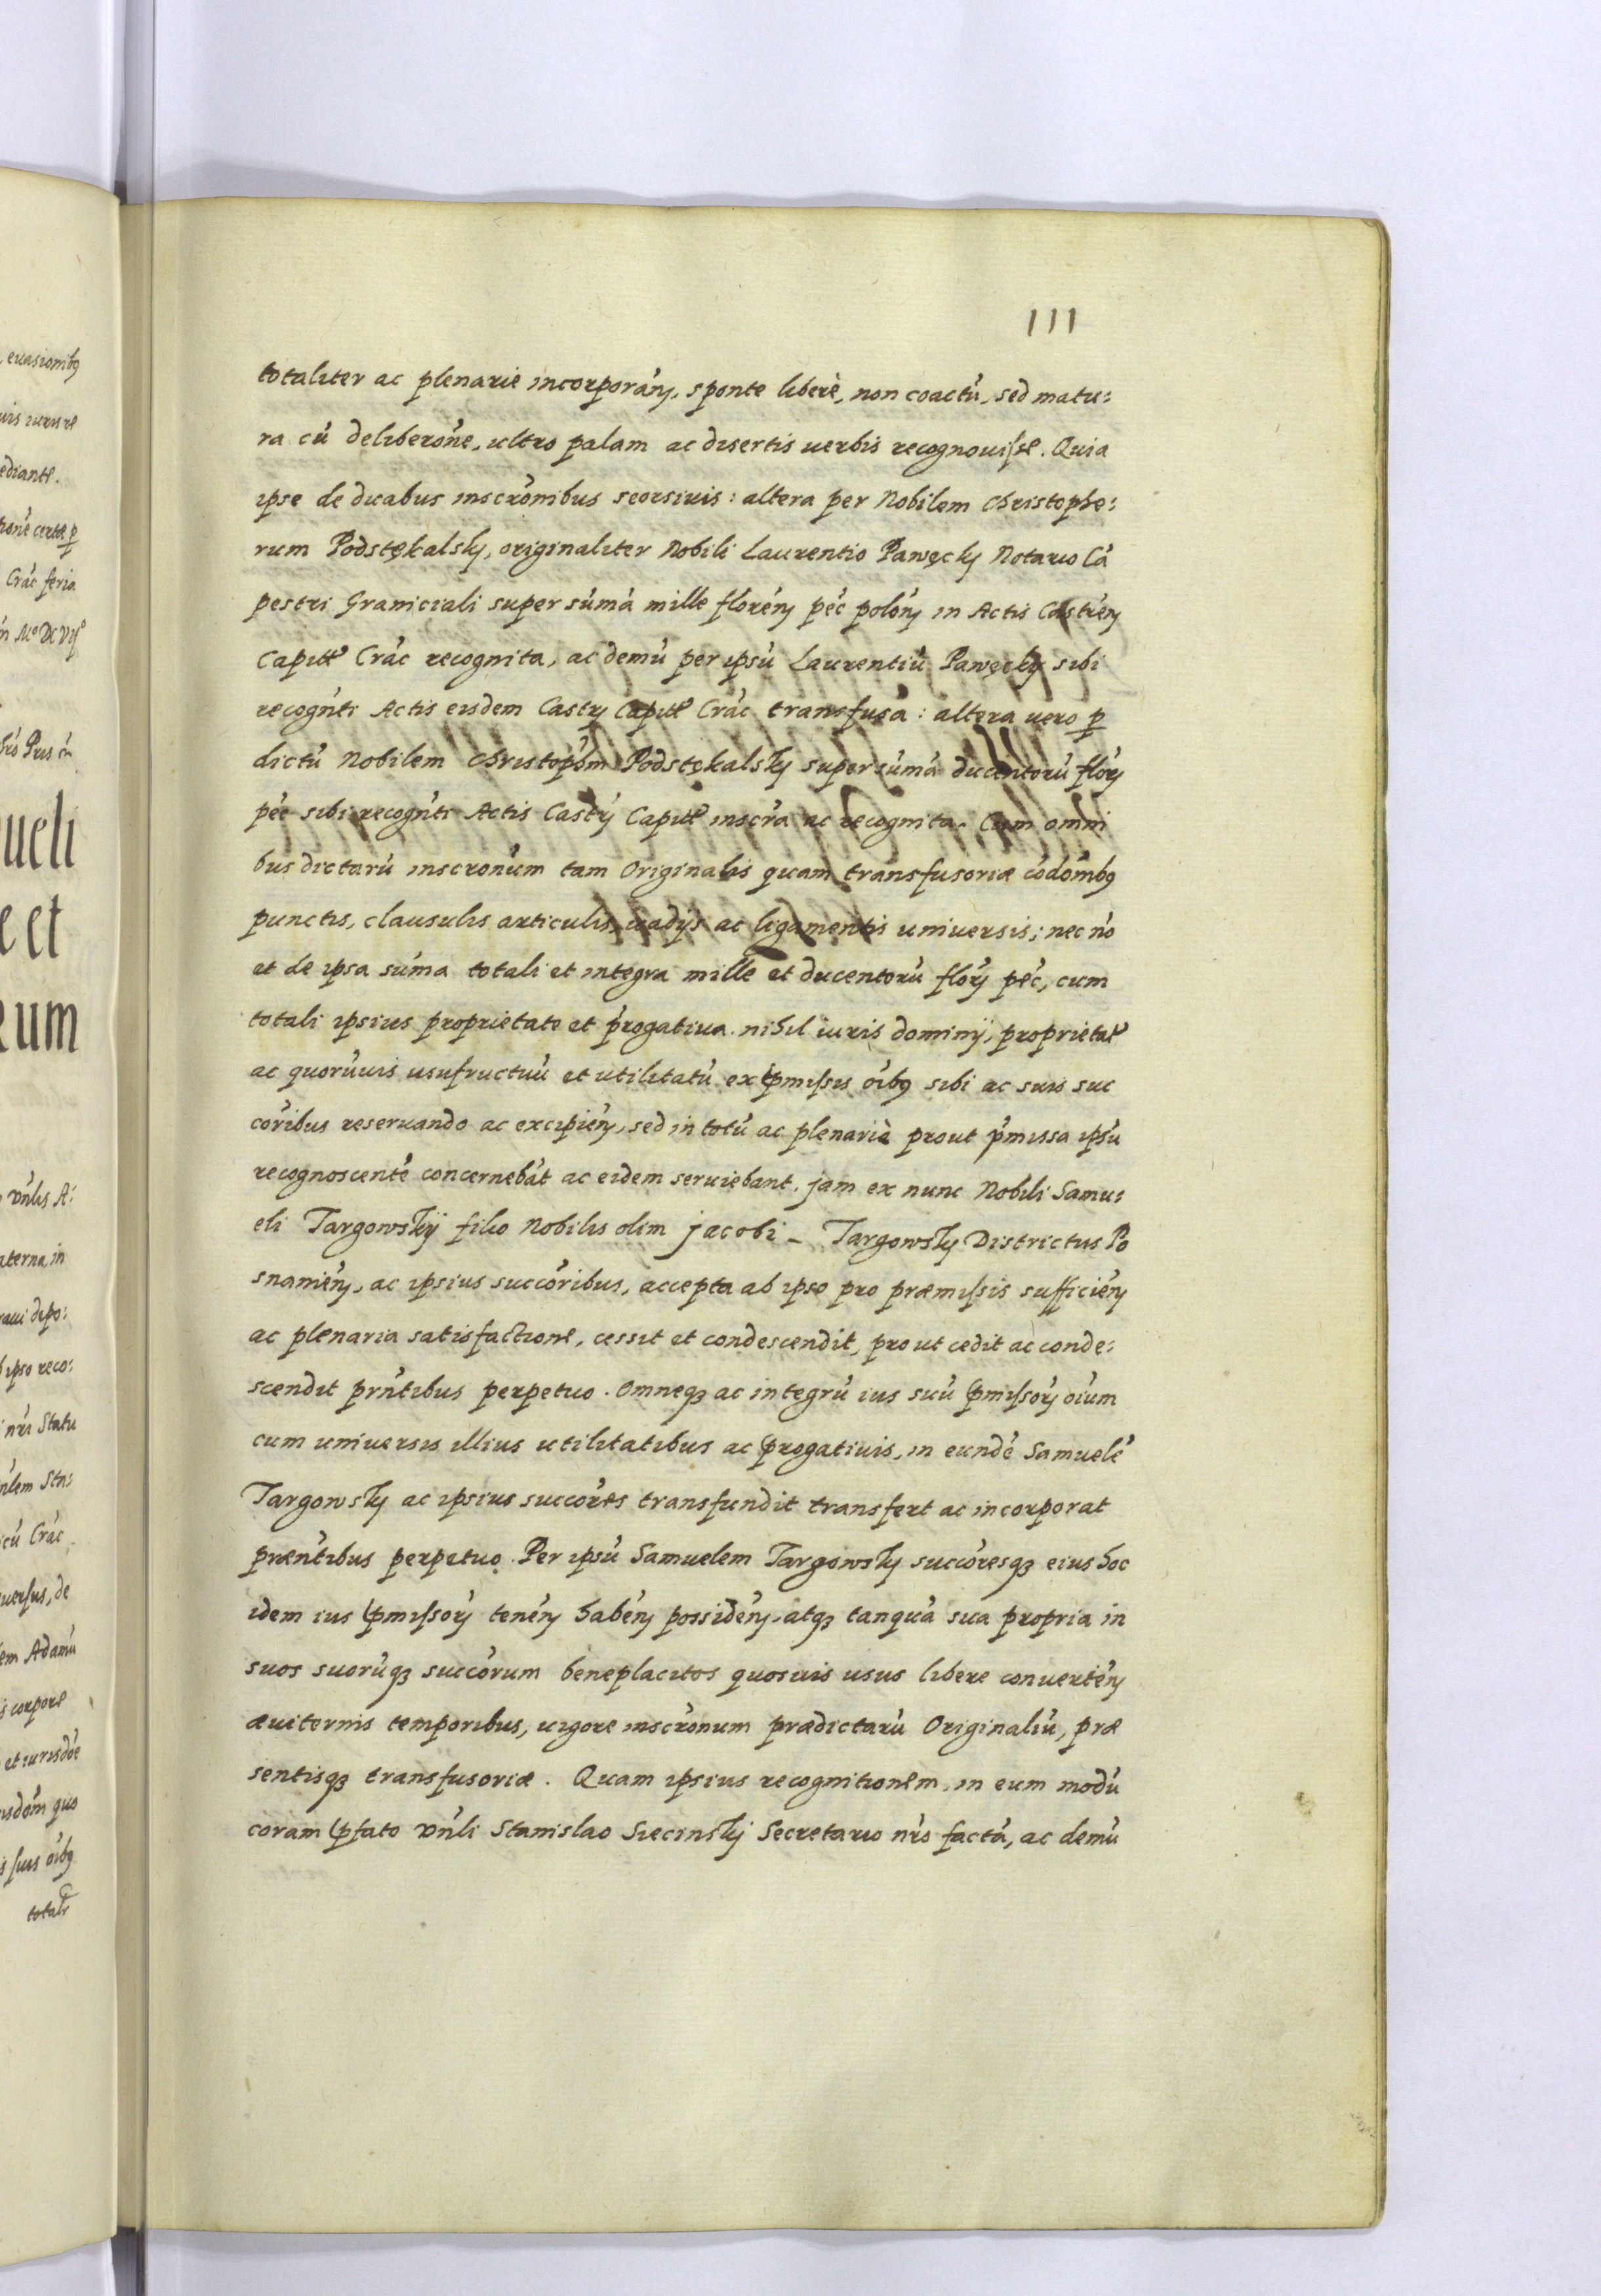 111
totaliter ac plenarie incorporań, sponte liberè, non coactú, sed matu:
ra cú deliberońe, ultro palam ac disertis uerbis recognouisse. Quia
ipse de duabus inscrońibus seorsiuis: altera per Nobilem Christopho:
rum Podstękalsky, originaliter Nobili Laurentio Pawęcky Notario Cá
pestri Graniciali super súmá mille floreń peć poloń in Actis Castreń
Capitł Crác recognita, ac demú per ipsú Laurentiú Pawęcky sibi
recogńti Actis eisdem Castr Capitł Crác transfusa: altera uero p
dictú Nobilem Christopóm Podstękalsky super súmá ducentorú flor
peć sibi recogńti Actis Castr Capitł inscŕa ac recognita. Cum omni
bus dictarú inscrońum tam Originalis quam transfusoriæ códóibq
punctis, clausulis articulis, uadijs ac ligamentis uniuersis; nec nó
et de ipsa súma totali et integra mille et ducentorú flor peć, cum
totali ipsius proprietate et prógatiua. nihil iuris dominij, proprietat
ac quorúuis usufructuú et utilitatú ex pmissis óibq sibi ac suis suc
córibus reseruando ac excipień, sed in totú ac plenariè prout pmissa ipsú
recognoscenté concernebát ac eidem seruiebant, jam ex nunc Nobili Samu:
eli Targowskij filio Nobilis olim jacobi – Targowsky Districtus Po
snanień, ac ipsius succóribus, accepta ab ipso pro præmissis sufficień
ac plenaria satisfactione, cessit et condescendit, prout cedit ac conde:
scendit prńtibus perpetuo. Omneqꝫ ac integrú ius suú pmissor óium
cum uniuersis illius utilitatibus ac progatiuis, in eundé Samuelé
Targowsky ac ipsius succóres transfundit transfert ac incorporat
præńtibus perpetuo. Per ipsú Samuelem Targowsky succóresqꝫ eius hoc
idem ius pmissor teneń habeń possideń, atqꝫ tanquá sua propria in
suos suorúqꝫ succórum beneplacitos quosuis usus libere conuerteń
æuiternis temporibus, uigore inscrónum prædictarú Originaliú, præ
sentisqꝫ transfusoriæ. Quam ipsius recognitionem, in eum modú
coram pfato vńli Stanislao Siecinskj Secretario nró factá, ac demú